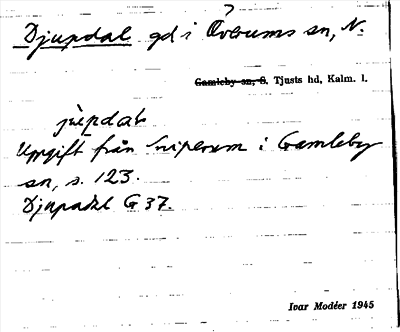 Djupdal gd i Överums sn, N.
Gamleby sn, S. Tjusts hd, Kalm. l.
jùpdɑ̄ʟ
Uppgift från Sniperum i Gamleby
sn, s. 123.
Djupadal G 37.
Ivar Modéer 1945